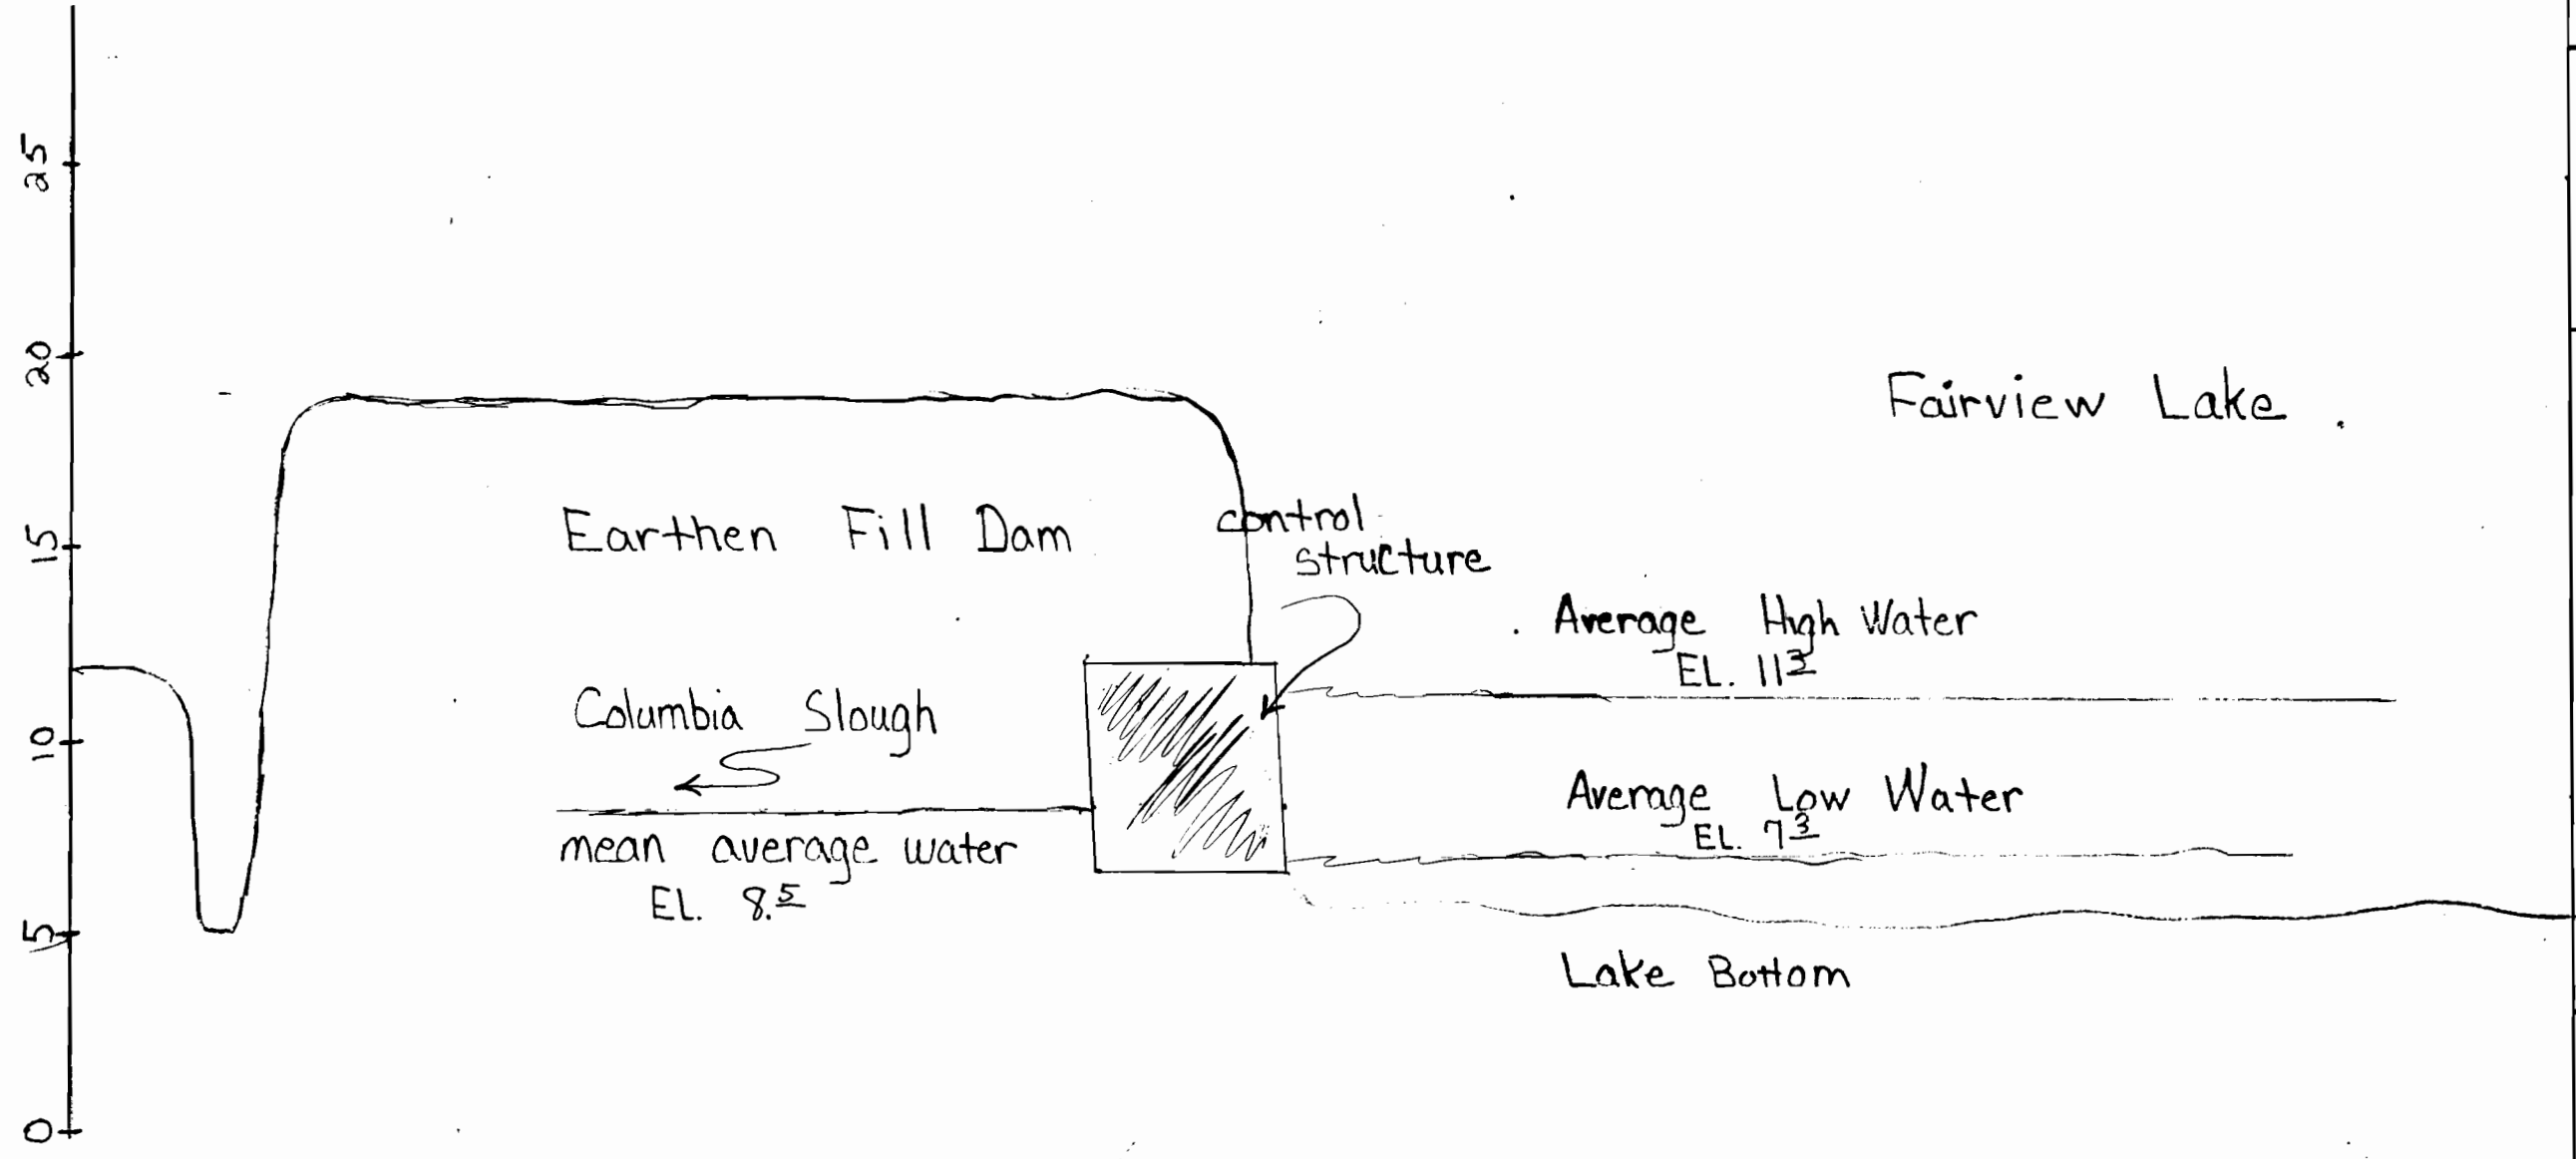 25
20
15
10
5
0
Fairview Lake
Earthen Fill Dam
control
structure
Average High Water
EL. 11³
Columbia Slough
Average Low Water
EL. 7³
mean average water
EL. 8.⁵
Lake Bottom